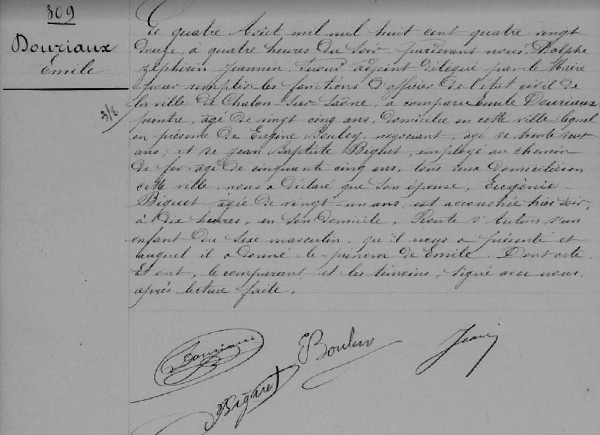 309
Douriaux
Emile
3/8
Le quatre Aout mil mil huit cent quatre vingt
douze, à quatre heures du soir pardevant nous,
Zéphirin Jeannin, adjoint délégué par le Maire
pour remplir les fonctions d'officier de l'état civil de
la ville de Chalon sur Saône, a comparu Emile Douriaux
peintre, agé de vingt cinq ans, domicilié en cette ville lequel
en présence de Eugène Bouley, négociant, agé de trente
ans; et de Jean Baptiste Biguet, employé au chemin
de fer, agé de cinquante cinq ans, tous deux domiciliés en
cette ville, nous a déclaré que son épouse, Eugénie
Biguet agée de vingt un ans, est accouchée hier soir,
à dix heures, en son domicile, Route d'Autun, d'un
enfant du sexe masculin, qu'il nous a présenté et
auquel il a donné le prénom de Emile. Dont acte
Et ont, le comparant et les témoins, signé avec nous
après lecture faite.
Douriaux
EBouley
Jeannin
Biguet